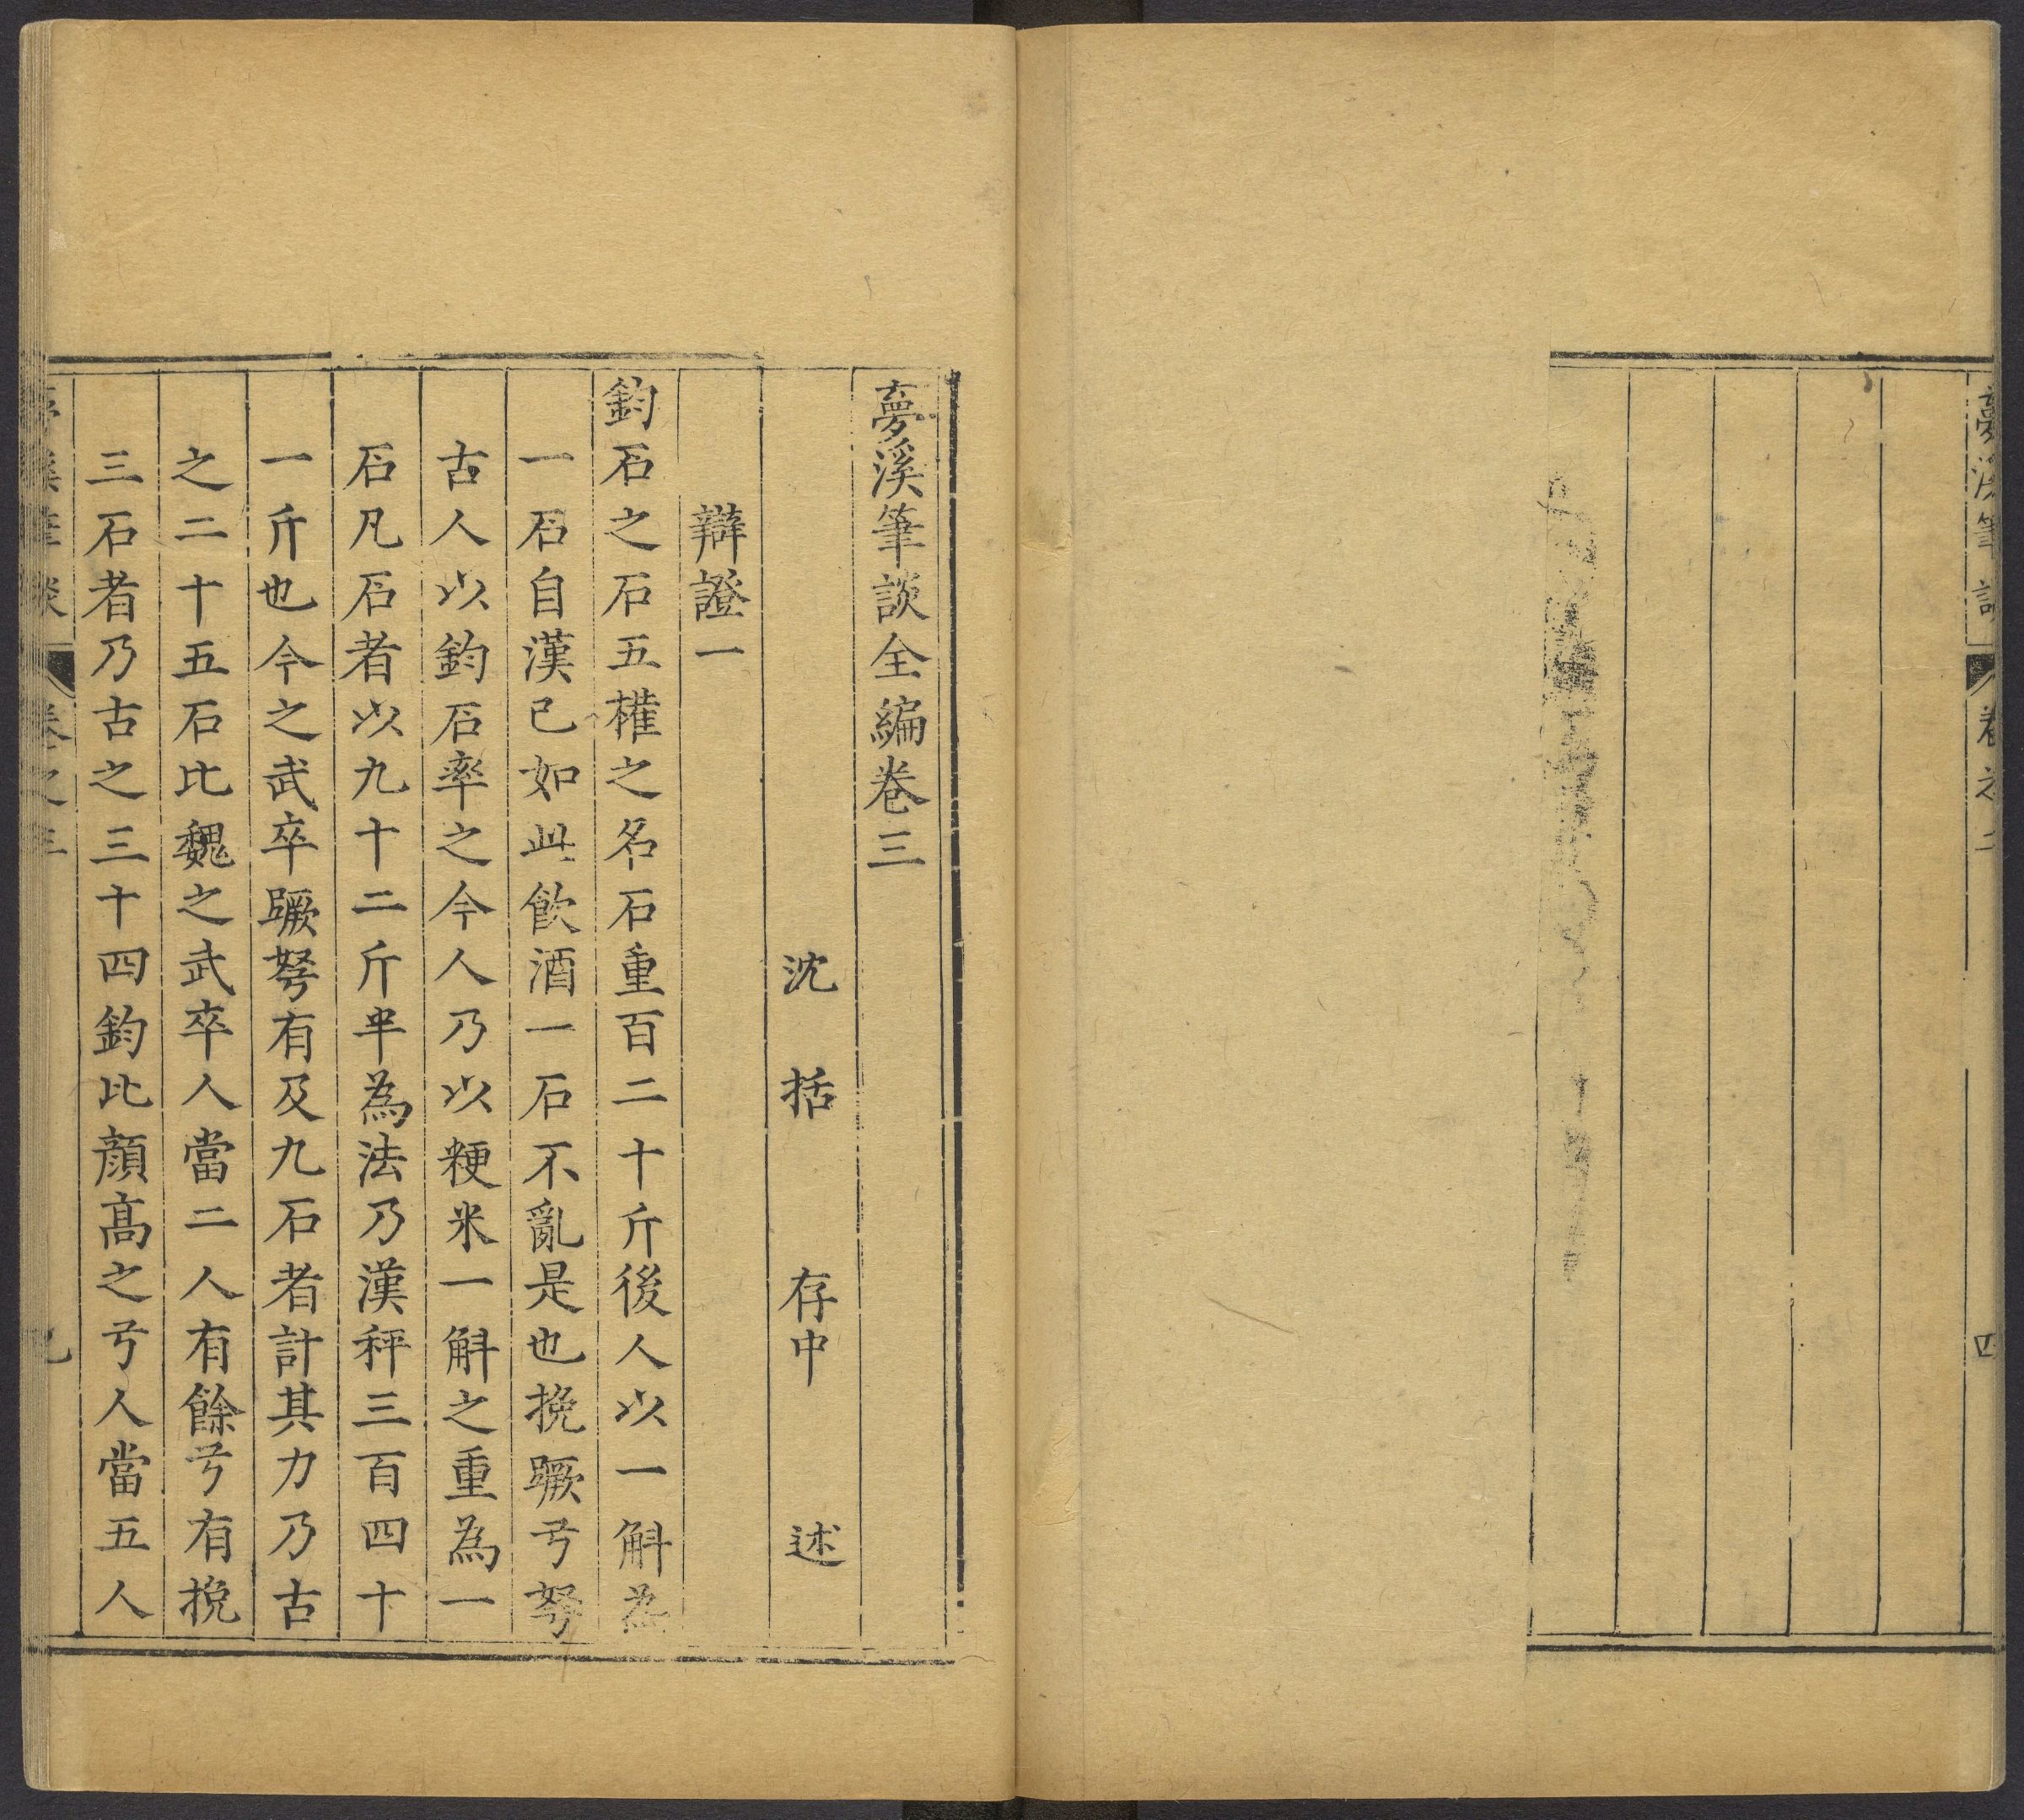 夢溪筆談
卷之二
四
夢溪筆談全編卷三
沈括存中述
辯證一
鈞石之石五權之名石重百二十斤後人以一斛為
一石自漢已如此飲酒一石不亂是也挽蹶弓弩
古人以鈞石率之今人乃以粳米一斛之重為一
石凡石者以九十二斤半為法乃漢秤三百四十
一斤也今之武卒蹶弩有及九石者計其力乃古
之二十五石比魏之武卒人當二人有餘弓有挽
三石者乃古之三十四鈞比顏高之弓人當五人
夢溪筆談
卷之三